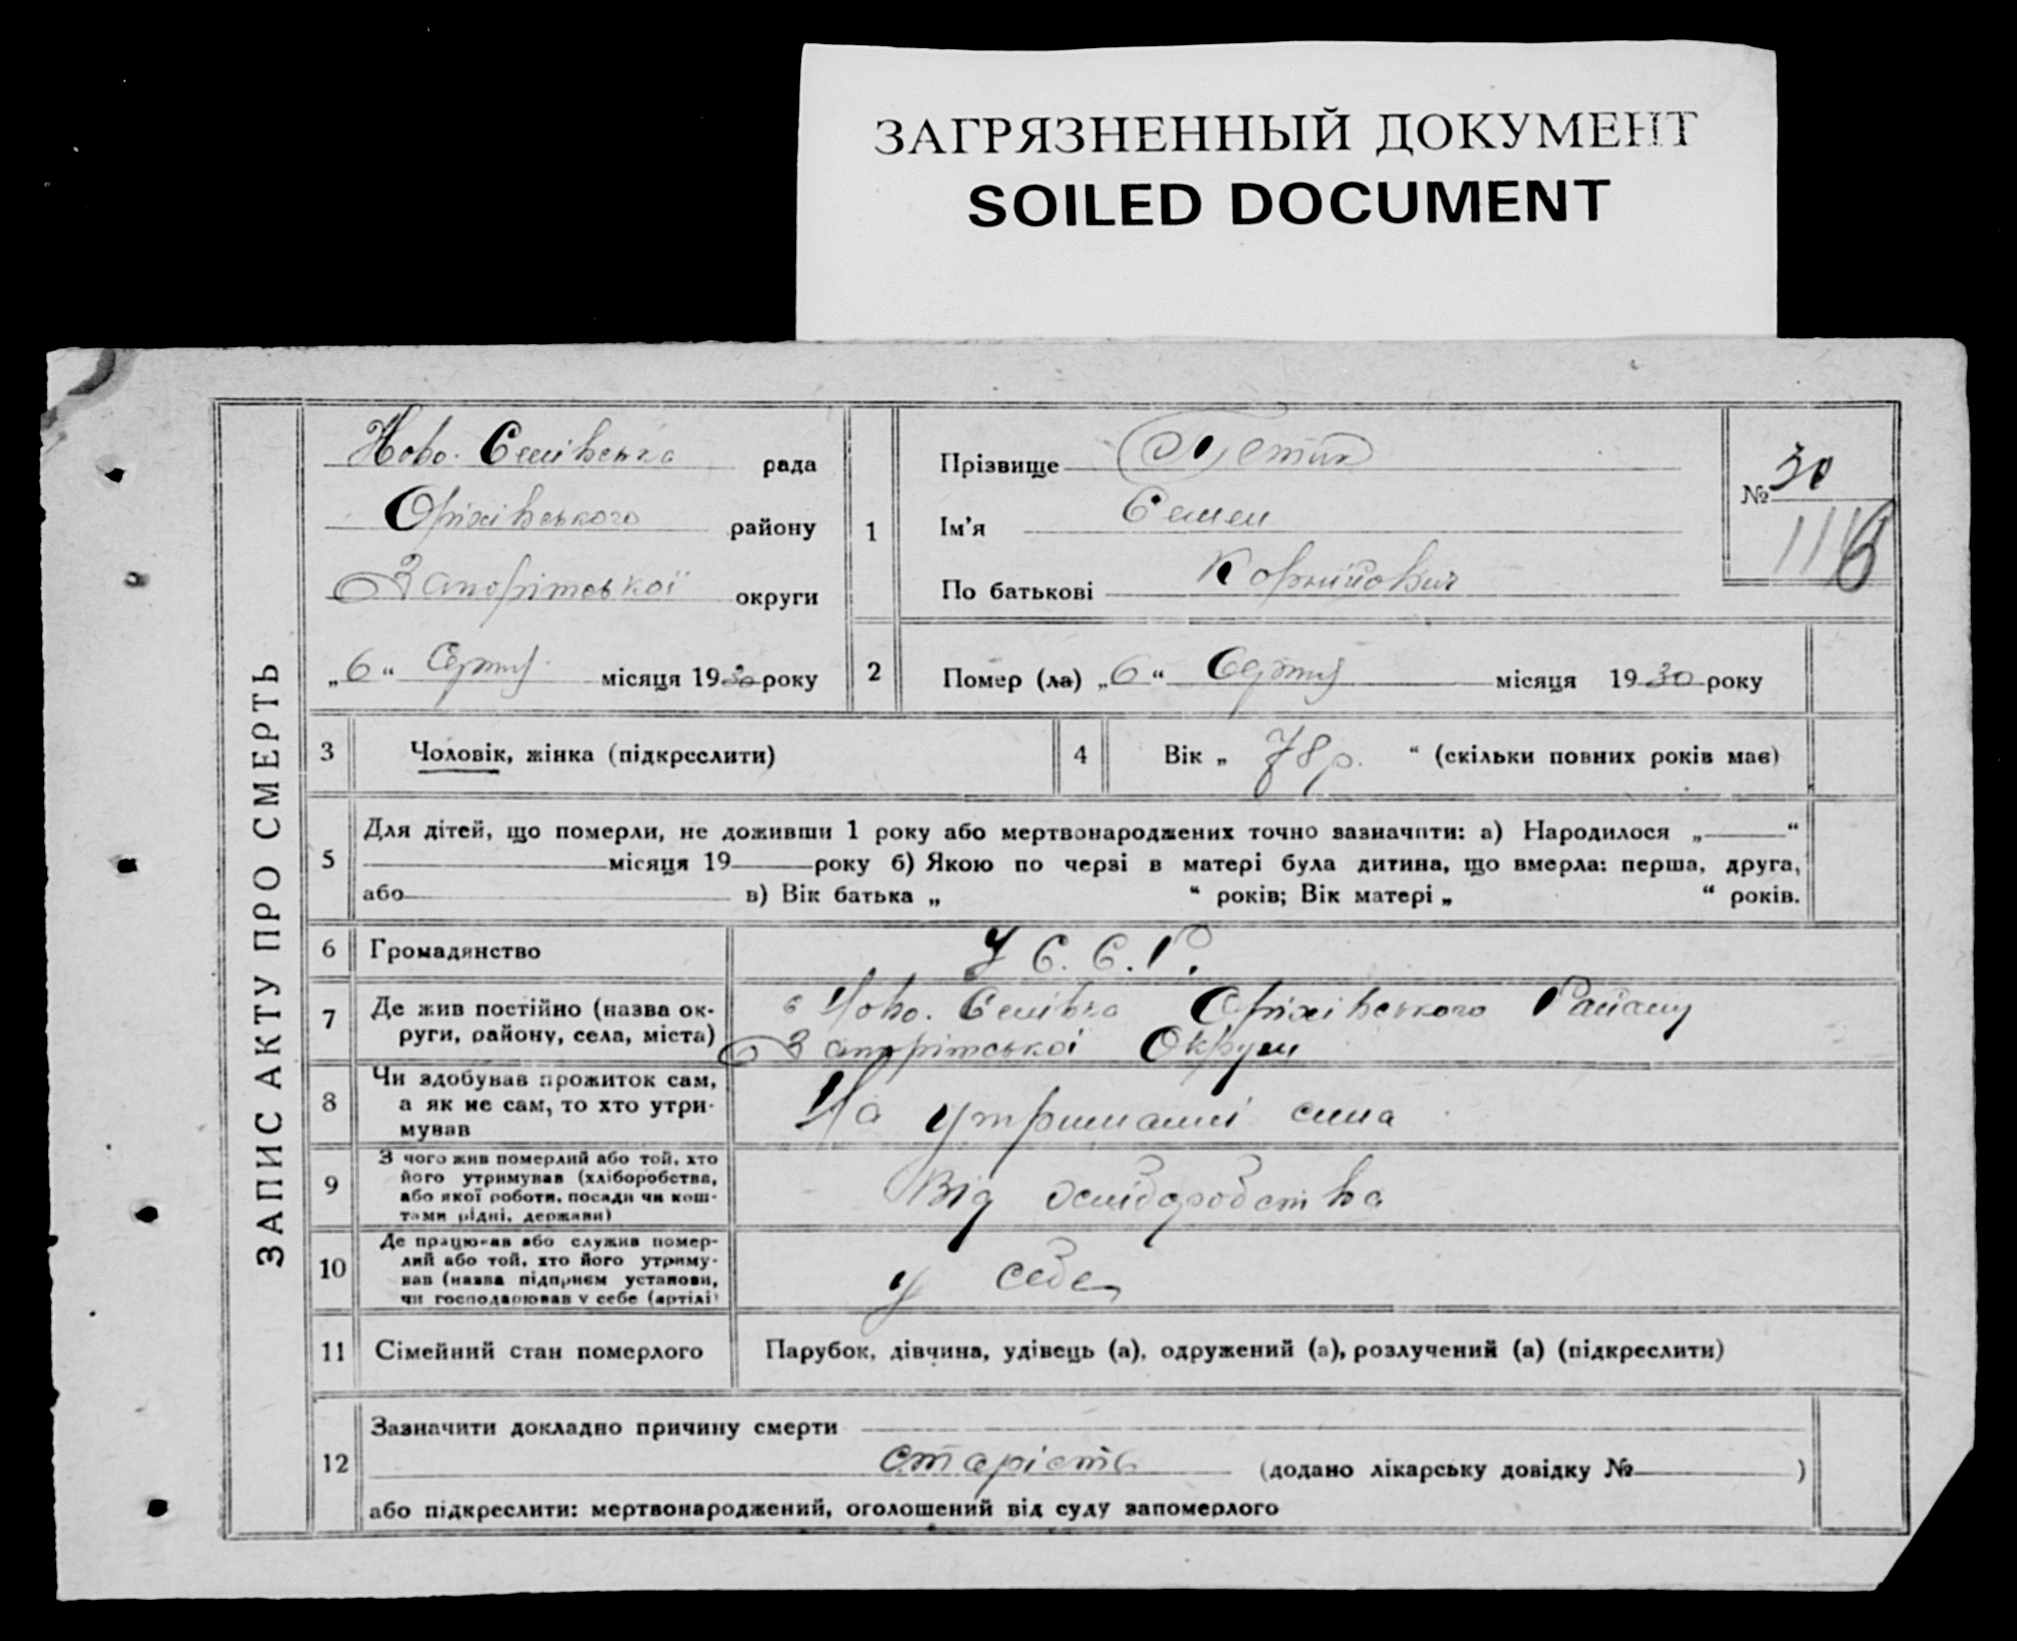 ЗАГРЯЗНЕННЫЙ ДОКУМЕНТ
SOILED DOCUMENT
ЗАПИС АКТУ ПРО СМЕРТЬ
Ново. Семівська рада
Оріхівського району
Запорітської округи
„6“ Серпня місяця 1930 року
1
Прізвище
Ім'я Семен
По батькові Корнійович
№ 30
116
2
Помер (ла) „6“ Серпня місяця 1930 року
3 Чоловік, жінка (підкреслити)
4 Вік „ 78 р. “ (скільки повних років має)
5 Для дітей, що померли, не доживши 1 року або мертвонароджених точно зазначити: а) Народилося „ “
місяця 19 року б) Якою по черзі в матері була дитина, що вмерла: перша, друга,
або в) Вік батька „ “ років; Вік матері „ “ років.
6 Громадянство У.С.С.Р.
7 Де жив постійно (назва ок-
руги, району, села, міста)
с Ново. Семівка Оріхівського Району
Запорітської Округи
8 Чи здобував прожиток сам,
а як не сам, то хто утри-
мував
На утриманні сина
9 З чого жив померлий або той, хто
його утримував (хліборобства,
або якої роботи, посади чи кош-
тами рідні, держави)
Від хліборобства
10 Де працював або служив помер-
лий або той, хто його утриму-
вав (назва підприєм установи,
чи господарював у себе (артілі)
у себе
11 Сімейний стан померлого Парубок, дівчина, удівець (а), одружений (а), розлучений (а) (підкреслити)
12 Зазначити докладно причину смерти
старість (додано лікарську довідку № )
або підкреслити: мертвонароджений, оголошений від суду запомерлого